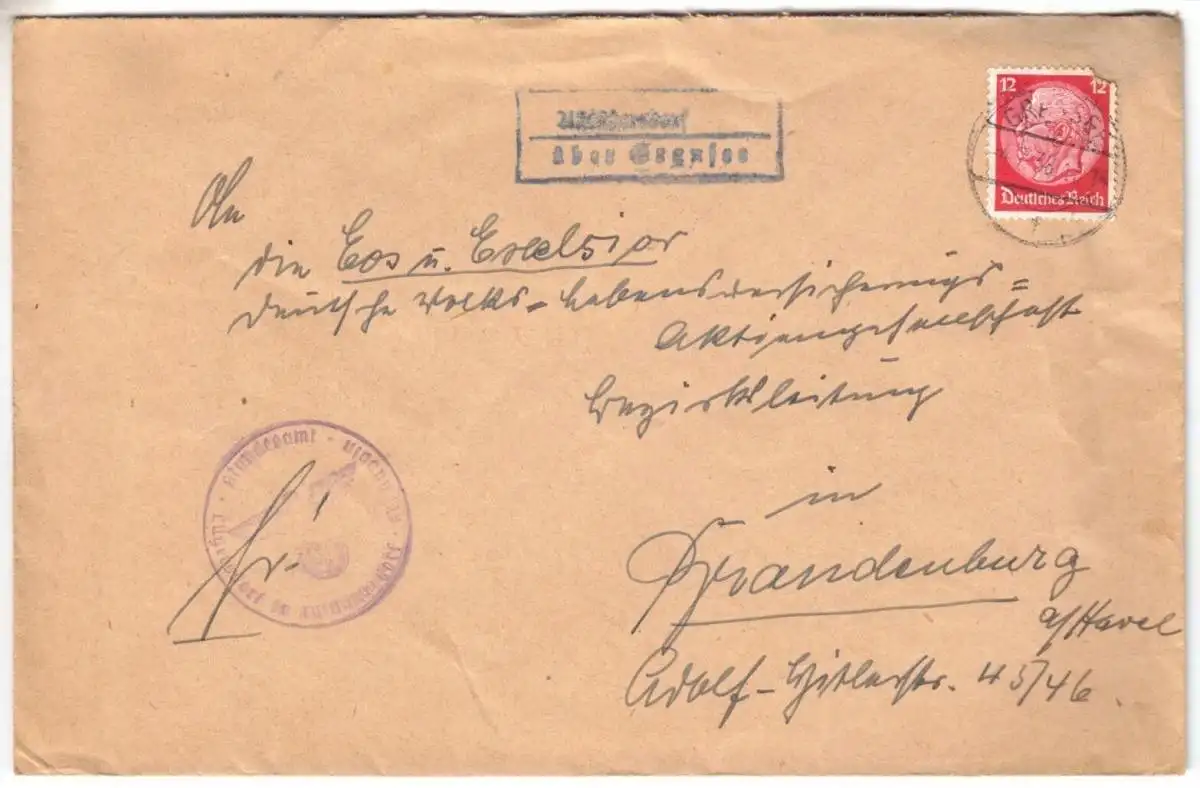 über Gransee
12 12
Deutsches Reich
An
die Eos u. Excelsior
deutsche Volks-Lebensversicherungs=
Aktiengesellschaft
Bezirksleitung
in
Brandenburg
a/Havel
Adolf-Hitlerstr. 45/46.
Standesamt
Fr.